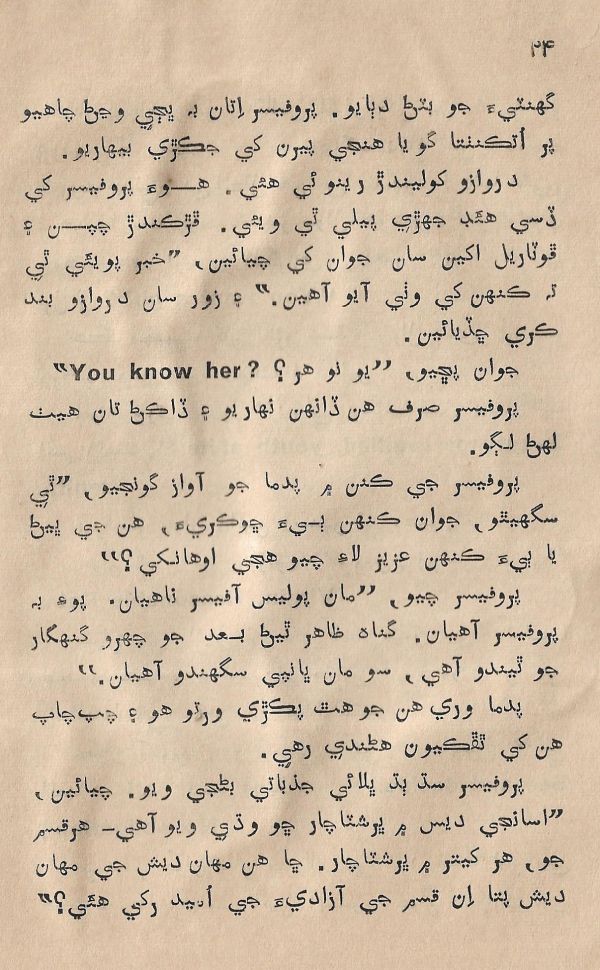 ۲۴
گهنٽيءَ جو بٽڻ دٻايو. پروفيسر اِتان بہ ڀڄي وڃڻ چاهيو
پر اُتڪنٺتا گويا هنجي پيرن کي جڪڙي بيهاريو.
دروازو کوليندڙ رينو ئي هئي. هوءَ پروفيسر کي
ڏسي هئڊ جهڙي پيلي ٿي ويئي. ڦڙڪندڙ چپن ۽
ڦوٽاريل اکين سان جوان کي چيائين, ”خبر پويئي ٿي
تہ ڪنهن کي وٺي آيو آهين.“ ۽ زور سان دروازو بند
ڪري ڇڏيائين.
جوان پڇيو, ”يو نو هر؟ You know her?“
پروفيسر صرف هن ڏانهن نهاريو ۽ ڏاڪڻ تان هيٺ
لهڻ لڳو.
پروفيسر جي ڪنن ۾ پدما جو آواز گونجيو, ”ٿي
سگهيٿو, جوان ڪنهن ٻيءَ ڇوڪريءَ, هن جي ڀيڻ
يا ٻيءَ ڪنهن عزيز لاءِ چيو هجي اوهانکي؟“
پروفيسر چيو, ”مان پوليس آفيسر ناهيان. پوءِ بہ
پروفيسر آهيان. گناه ظاهر ٿيڻ بعد جو چهرو گنهگار
جو ٿيندو آهي, سو مان ڀانپي سگهندو آهيان.“
پدما وري هن جو هٿ پڪڙي ورتو هو ۽ چپ چاپ
هن کي ٿڦڪيون هڻندي رهي.
پروفيسر سڌ ٻڌ ڀلائي جذباتي بڻجي ويو. چيائين,
”اسانجي ديس ۾ ڀرشٽاچار ڇو وڌي ويو آهي- هرقسم
جو, هر کيتر ۾ ڀرشٽاچار. ڇا هن مهان ديش جي مهان
ديش پتا اِن قسم جي آزاديءَ جي اُميد رکي هئي؟“